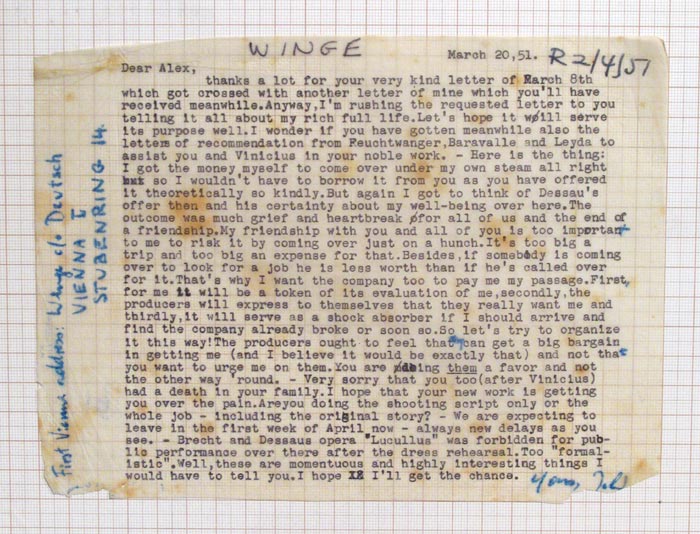 WINGE
March 20,51. R 2/4/51
Dear Alex,
thanks a lot for your very kind letter of March 8th
which got crossed with another letter of mine which you'll have
received meanwhile.Anyway,I'm rushing the requested letter to you
telling it all about my rich full life.Let's hope it will serve
its purpose well.I wonder if you have gotten meanwhile also the
letters of recommendation from Feuchtwanger,Baravalle and Leyda to
assist you and Vinicius in your noble work. - Here is the thing:
I got the money myself to come over under my own steam all right
but so I wouldn't have to borrow it from you as you have offered
it theoretically so kindly.But again I got to think of Dessau's
offer then and his certainty about my well-being over here.The
outcome was much grief and heartbreak for all of us and the end of
a friendship.My friendship with you and all of you is too important
to me to risk it by coming over just on a hunch.It's too big a
trip and too big an expense for that.Besides,if somebody is coming
over to look for a job he is less worth than if he's called over
for it.That's why I want the company too to pay me my passage.First,
for me it will be a token of its evaluation of me,secondly,the
producers will express to themselves that they really want me and
thirdly,it will serve as a shock absorber if I should arrive and
find the company already broke or soon so.So let's try to organize
it this way!The producers ought to feel that can get a big bargain
in getting me (and I believe it would be exactly that) and not that
you want to urge me on them.You are doing them a favor and not
the other way 'round. - Very sorry that you too(after Vinicius)
had a death in your family.I hope that your new work is getting
you over the pain.Areyou doing the shooting script only or the
whole job - including the original story? - We are expecting to
leave in the first week of April now - always new delays as you
see. - Brecht and Dessaus opera "Lucullus" was forbidden for pub-
lic performance over there after the dress rehearsal.Too "formal-
istic".Well,these are momentuous and highly interesting things I
would have to tell you.I hope I'll get the chance.
Yours,
First Vienna address: Winge c/o Deutsch
VIENNA I
STUBENRING 14.